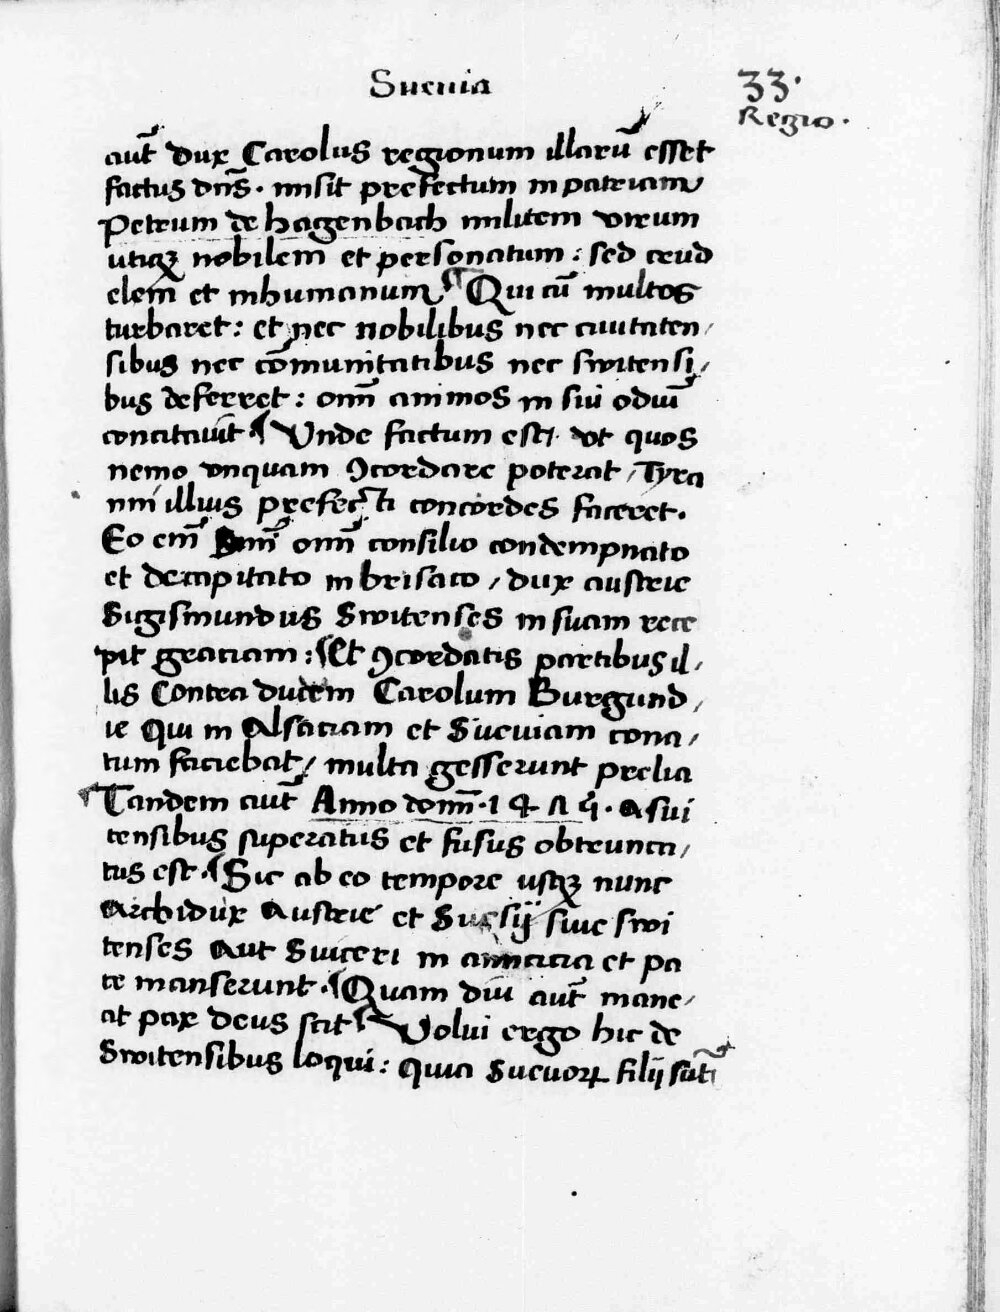 Suevia
33.
Regio.
aut̄ dux Carolus regionum illarū esset
factus dn̄s. misit prefectum in patriam
Petrum de hagenbach militem virum
utiqꝫ nobilem et personatum: sed crud
elem et inhumanum ¶ Qui cū multos
turbaret: et nec nobilibus nec civitaten/
sibus nec cōmunitatibus nec switensi/
bus deferret: om̄ animos in sui odiū
concitavit ¶ Unde factum est. vt quos
nemo vnquam ꝯcordare poterat / Tyra
nni illius prefecti concordes faceret.
Eo em̄ om̄ consilio condempnato
et decapitato in brisaco / dux austrie
Sigismundus Switenses in suam rece
pit graciam: ¶ Et ꝯcordatis partibus il/
lis Contra ducem Carolum Burgund/
ie Qui in Alsaciam et Sueviam cona/
tum faciebat / multa gesserunt prelia
¶ Tandem aut̄ Anno dom̄. 1 4 7 . a sui
tensibus superatus et fusus obtrunca/
tus est. ¶ Sic ab eo tempore usqꝫ nunc
Archidux Austrie et sive swi
tenses Aut Suiceri in amicicia et pa
ce manserunt. ¶ Quam diu aut̄ mane/
at pax deus scit ¶ Volui ergo hic de
Switensibus loqui: Quia Suevoꝝ filij sūt